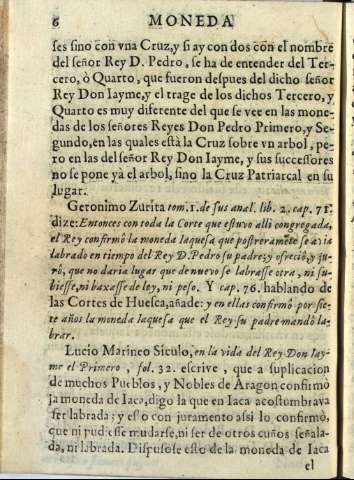 6 MONEDA
ses sino con vna Cruz, y si ay con dos con el nombre
del señor Rey D. Pedro, se ha de entender del Ter-
cero, ò Quarto, que fueron despues del dicho señor
Rey Don Iayme, y el trage de los dichos Tercero, y
Quarto es muy diferente del que se vee en las mone-
das de los señores Reyes Don Pedro Primero, y Se-
gundo, en las quales està la Cruz sobre vn arbol, pe-
ro en las del señor Rey Don Iayme, y sus successores
no se pone yà el arbol, sino la Cruz Patriarcal en su
lugar.
Geronimo Zurita tom. 1. de sus anal. lib. 2. cap. 71.
dize: Entonces con toda la Corte que estuvo alli congregada,
el Rey confirmò la moneda Iaquesa que postreramẽte se avia
labrado en tiempo del Rey D. Pedro su padre; y ofreciò, y ju-
rò, que no daria lugar que de nuevo se labrasse otra, ni su-
biesse, ni baxasse de ley, ni peso. Y cap. 76. hablando de
las Cortes de Huesca, añade: y en ellas confirmò por sie-
te años la moneda Iaquesa que el Rey su padre mandò la-
brar.
Lucio Marineo Siculo, en la vida del Rey Don Iay-
me el Primero, fol. 32. escrive, que a suplicacion
de muchos Pueblos, y Nobles de Aragon confirmò
la moneda de Iaca, digo la que en Iaca acostumbrava
ser labrada; y esto con juramento assi lo confirmò,
que ni pudiesse mudarse, ni ser de otros cuños señala-
da, ni labrada. Dispusose esto de la moneda de Iaca
el